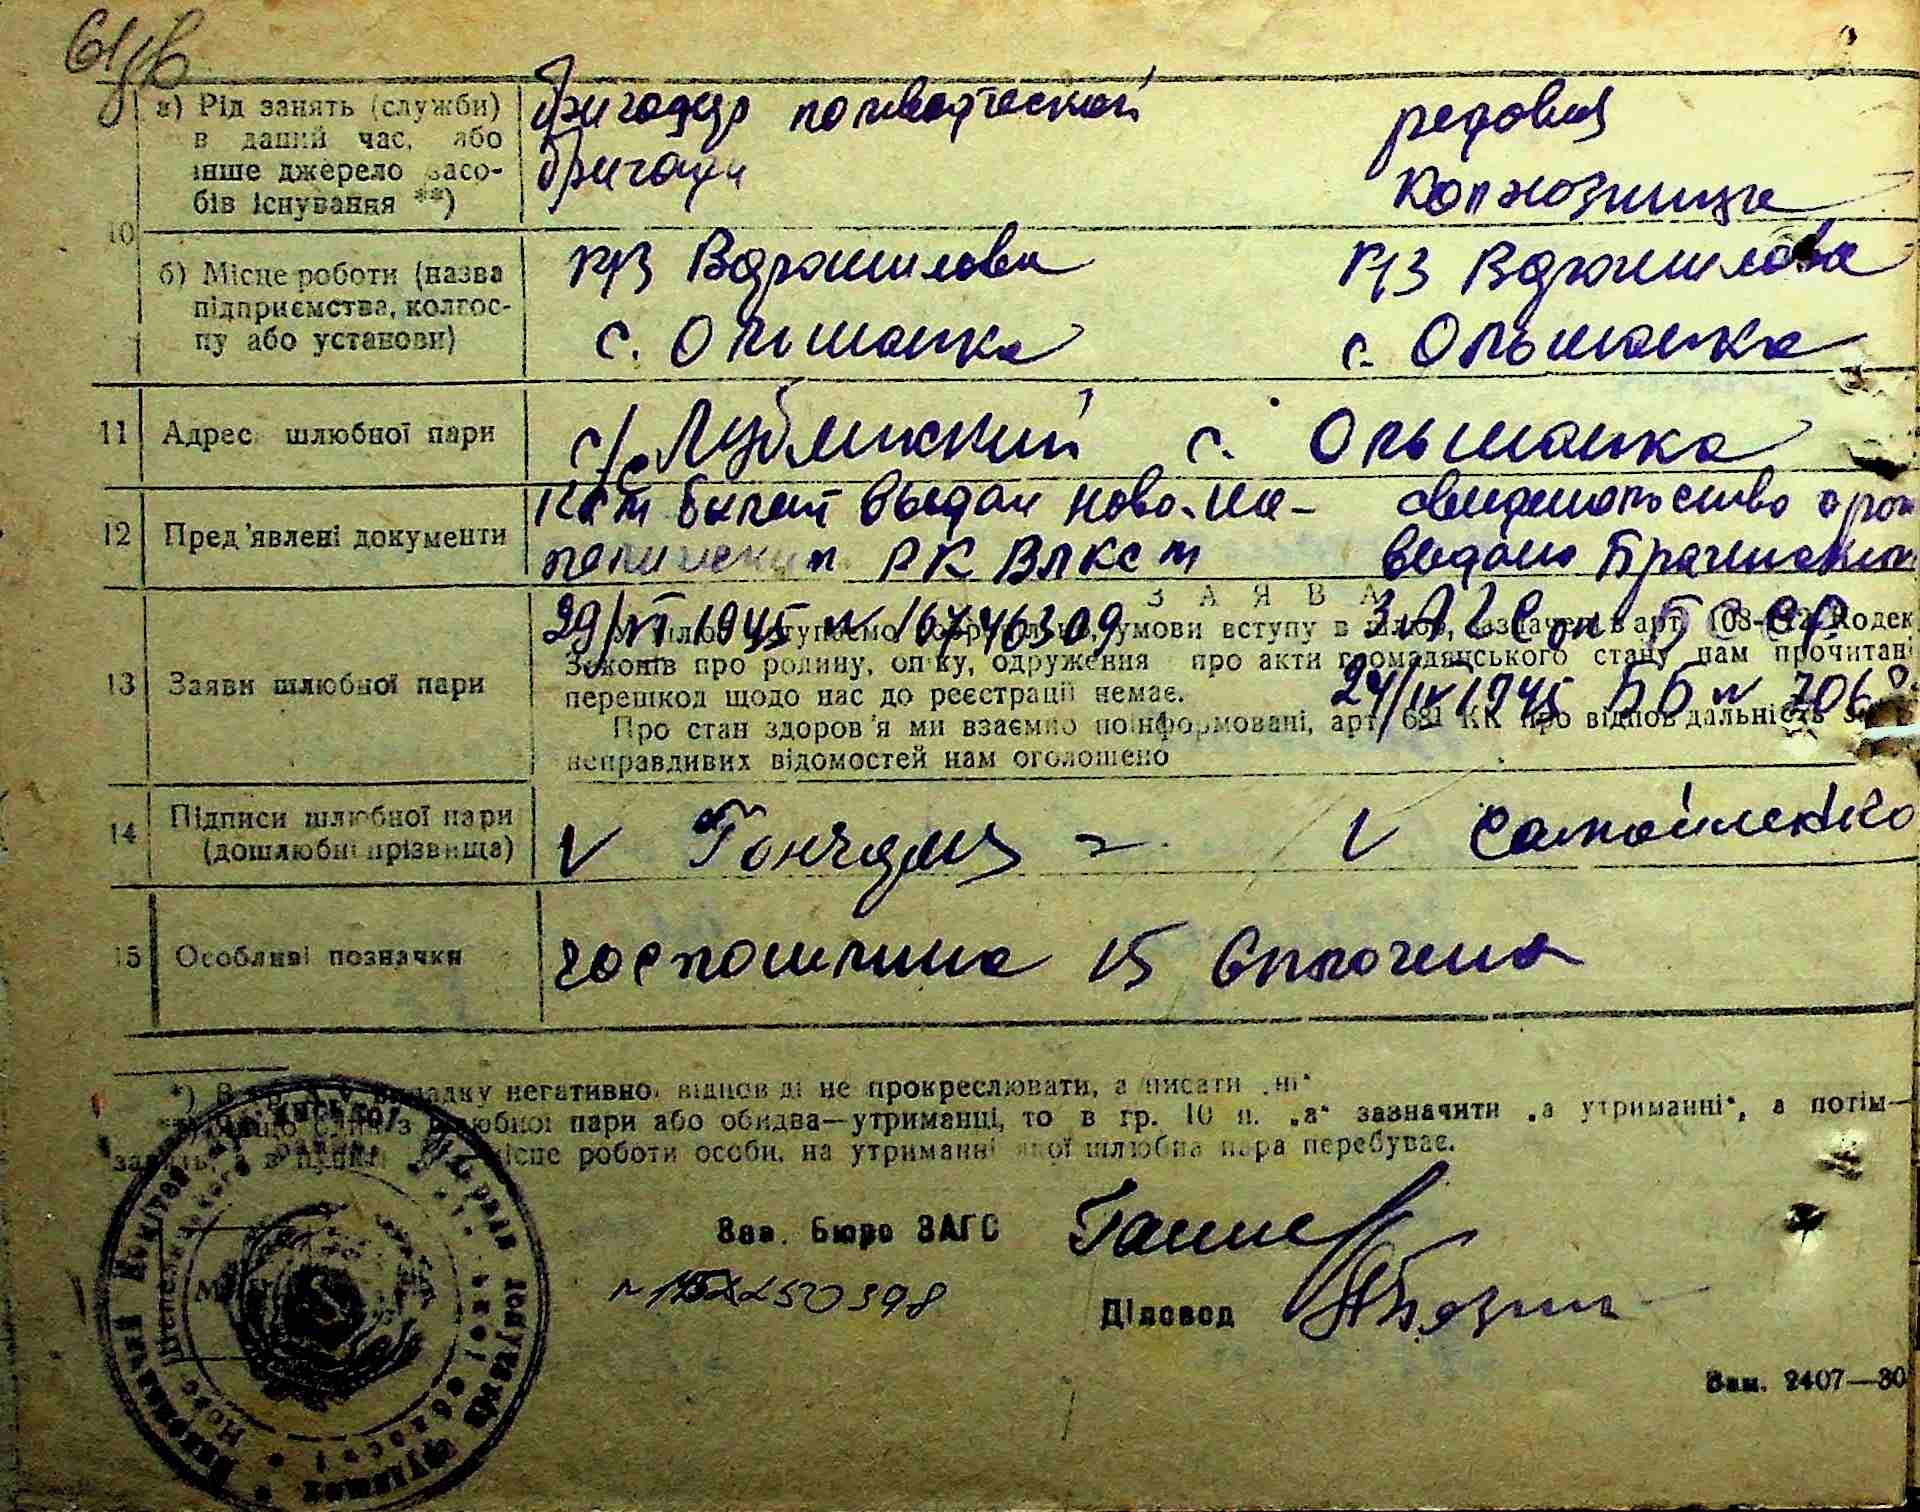 61 зв
а) Рід занять (служби) в даний час, або інше джерело засобів існування **)
бригадир полеводческой
бригади
редовая
колхозница
10
б) Місце роботи (назва підприємства, колгоспу або установи)
к/з Ворошилова
с. Ольшанка
к/з Ворошилова
с. Ольшанка
11 Адрес шлюбної пари
с/с Лублиский с. Ольшанка
12 Пред'явлені документи
Ксм билет выдан Ново-Ша-
пелическим РК ВЛКСМ
29/VI 1945 № 16746309
свидетельство о рож
выдано Брагинским
ЗАГСом БССР
24/IV 1945 ББ № 706
13 Заяви шлюбної пари
ЗАЯВА
умови вступу в шлюб, зазначені в арт. 108- Кодек
Законів про родину, опіку, одруження про акти громадянського стану нам прочитані
перешкод щодо нас до реєстрації немає.
Про стан здоров'я ми взаємно поінформовані, арт. КК про відповідальність за
неправдивих відомостей нам оголошено
14 Підписи шлюбної пари
(дошлюбні прізвища)
V Гончар V Самойленко
15 Особливі позначки
госпошлина 15 оплочена
*) В випадку негативної відповіді не прокреслювати, а писати „ні“
**) Якщо один з шлюбної пари або обидва—утриманці, то в гр. 10 п. „а“ зазначити „а утриманні“, а потім—
місце роботи особи, на утриманні якої шлюбна пара перебуває.
Зав. Бюро ЗАГС
Діловод
Зам. 2407—30